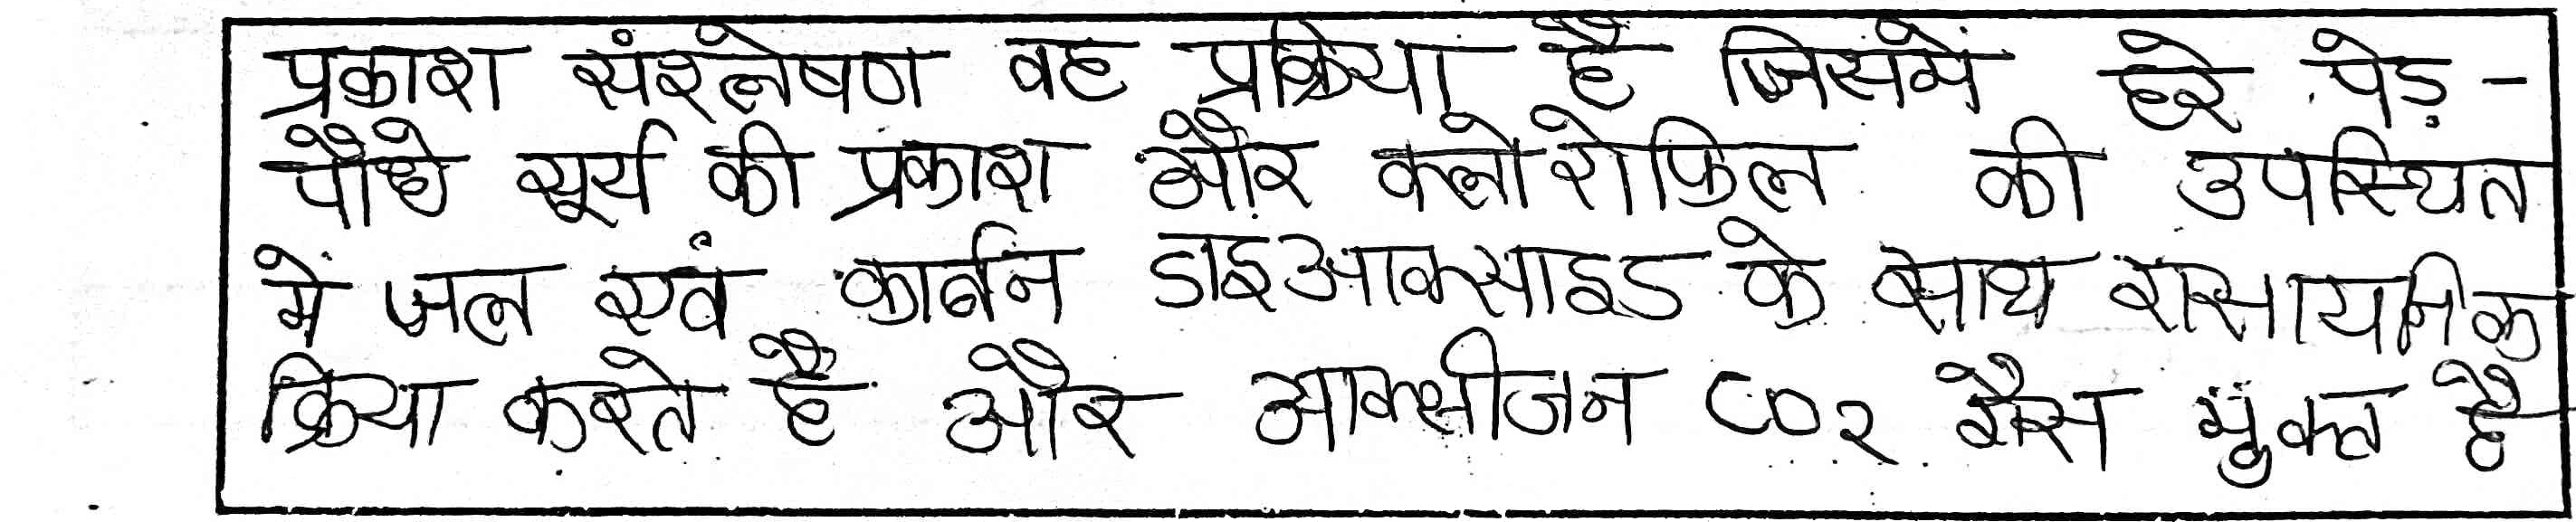 प्रकाश संश्लेषण वह प्रक्रिया है जिसमें हरे पेड़ -
पौधे सूर्य की प्रकाश और क्लोरोफिल की उपस्थित
में जल एवं कार्बन डाइआक्साइड के साथ रासायनिक
क्रिया करते है और आक्सीजन CO2 गैस मुक्त है